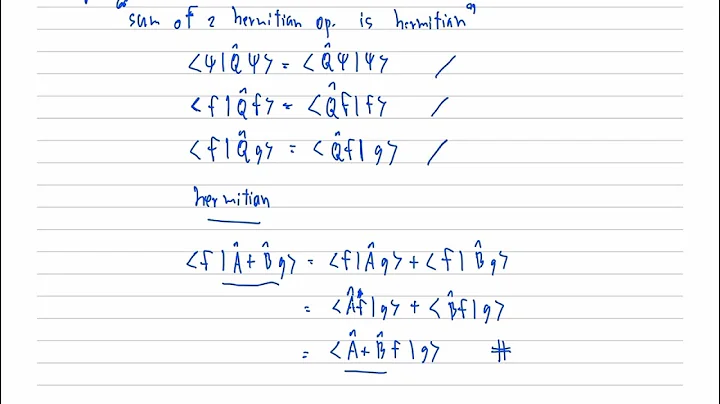 "sum of 2 hermitian op. is hermitian"
<Ψ|Q̂Ψ> = <Q̂Ψ|Ψ> /
<f|Q̂f> = <Q̂f|f> /
<f|Q̂g> = <Q̂f|g> /
hermitian
<f|Â+B̂g> = <f|Âg> + <f|B̂g>
= <Âf|g> + <B̂f|g>
= <Â+B̂f|g> #